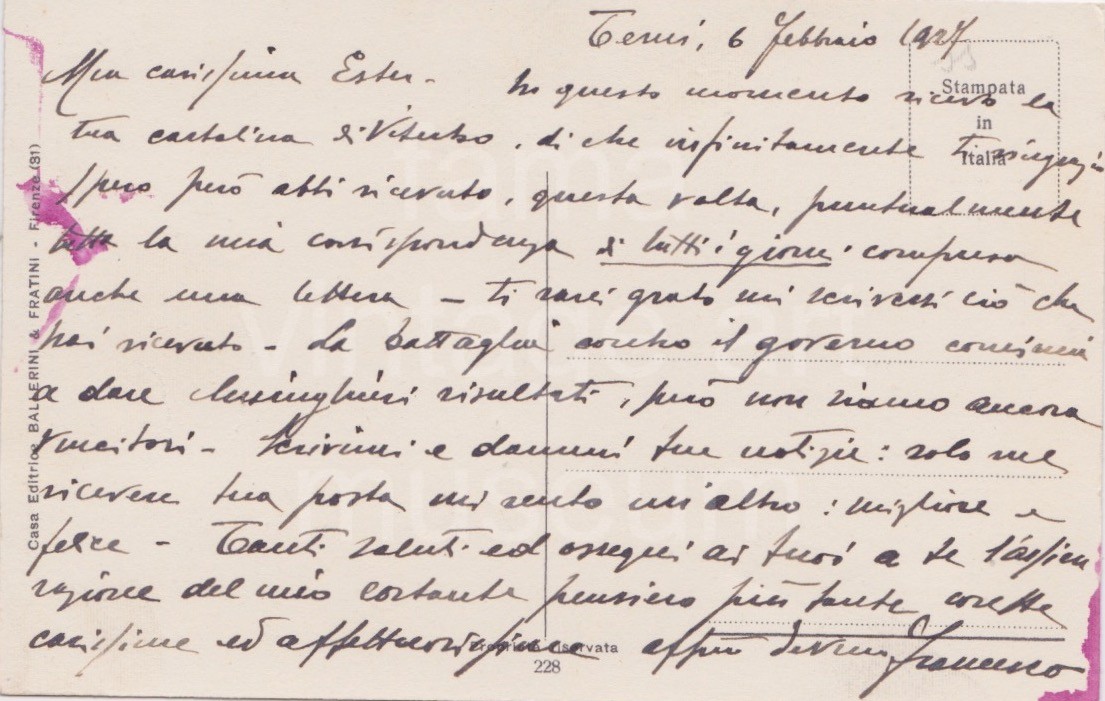 Terni, 6 febbraio 1927
Mia carissima Ester -
In questo momento ricevo la
tua cartolina di Viterbo, di che infinitamente ti ringrazio
Spero però abbi ricevuto, questa volta, puntualmente
tutta la mia corrispondenza di tutti i giorni: compresa
anche una lettera - ti sarei grato mi scrivessi ciò che
hai ricevuto - La battaglia contro il governo comincia
a dare lusinghieri risultati, però non siamo ancora
vincitori - Scrivimi e dammi tue notizie: solo nel
ricevere tua posta mi sento un'altro: migliore e
felice - Tanti saluti ed ossequi ai tuoi a te l'assicu
razione del mio costante pensiero più tante cosette
carissime ed affettuosissime aff.mo Francesco
Stampata
in
Italia
Casa Editrice BALLERINI & FRATINI - Firenze (31)
Proprietà riservata
228
fama
vintage art
museum